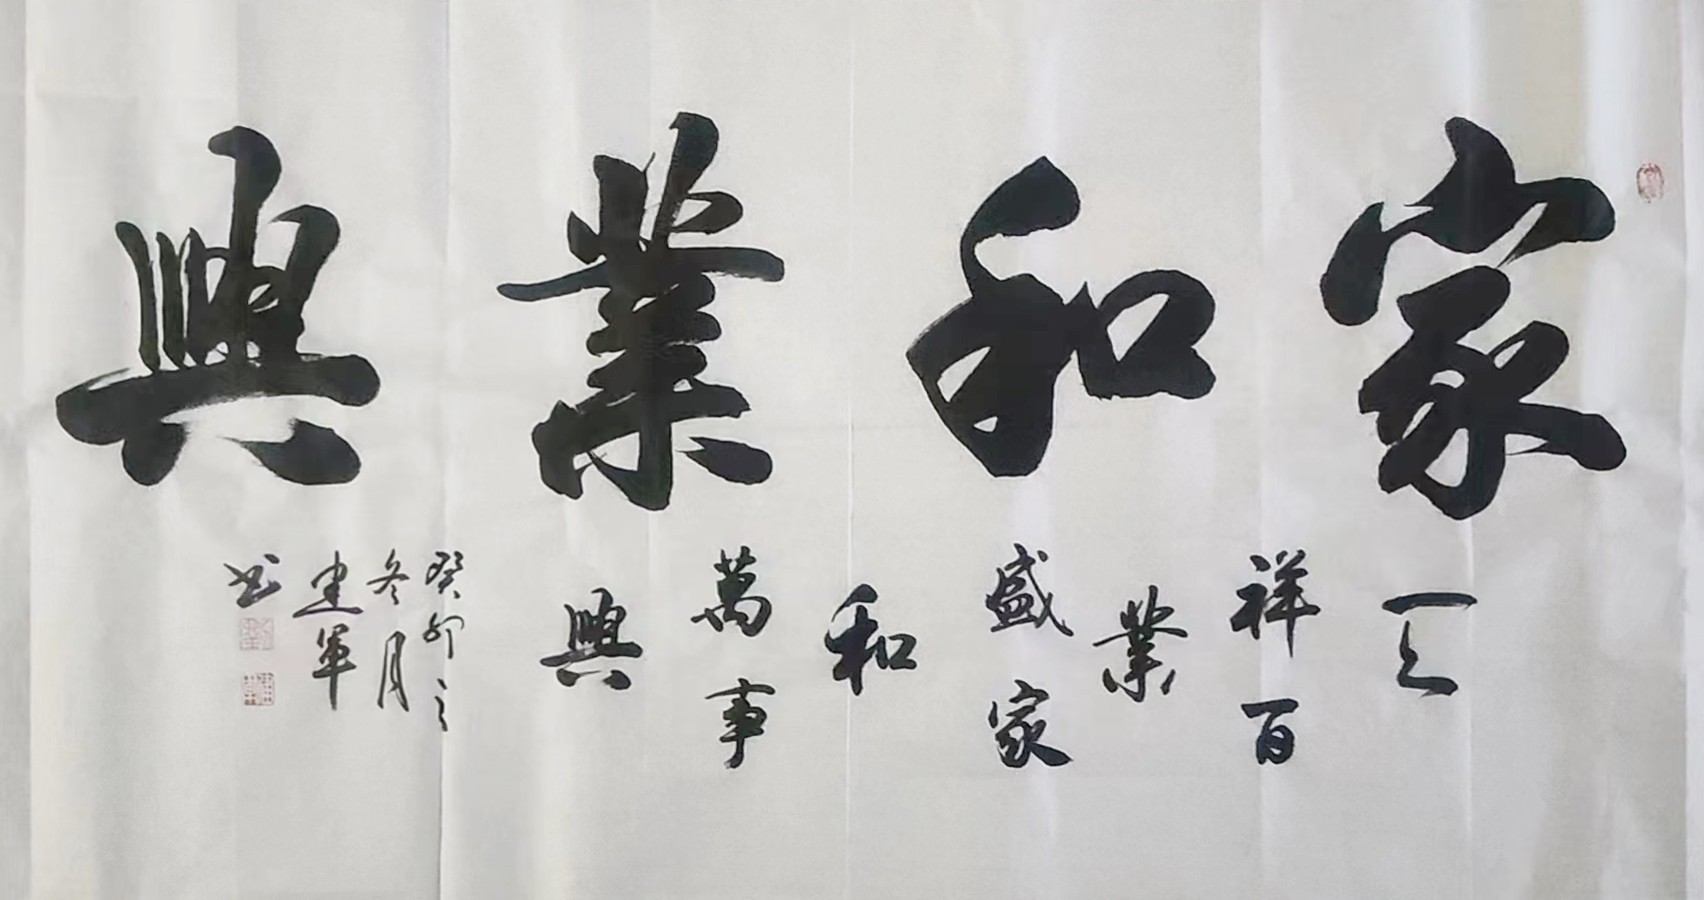 家和業興
天
祥百
業
盛家
和
萬事
興
癸卯之
冬月
建軍
书